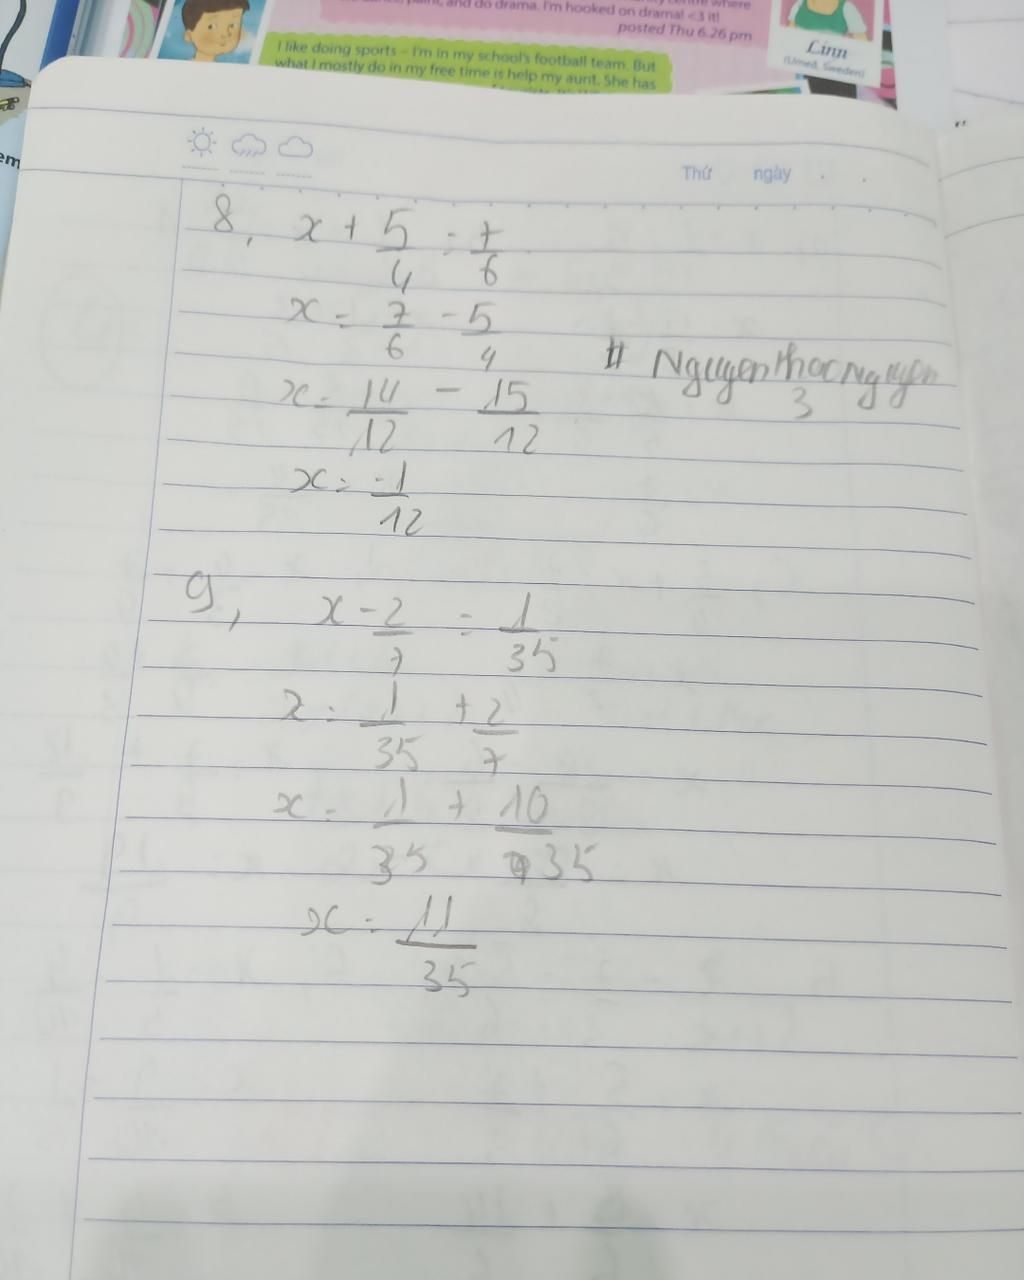 and do drama. I'm hooked on drama! <3 it!
posted Thu 6.26 pm
I like doing sports – I'm in my school's football team. But
what I mostly do in my free time is help my aunt. She has
Linn
(Umeå, Sweden)
em
Thứ ngày . .
8, x + 5/4 = 7/6
x = 7/6 - 5/4
# NguyenThacNguyen
3
x = 14/12 - 15/12
x = -1/12
9, x - 2/7 = 1/35
x = 1/35 + 2/7
x = 1/35 + 10/35
x = 11/35